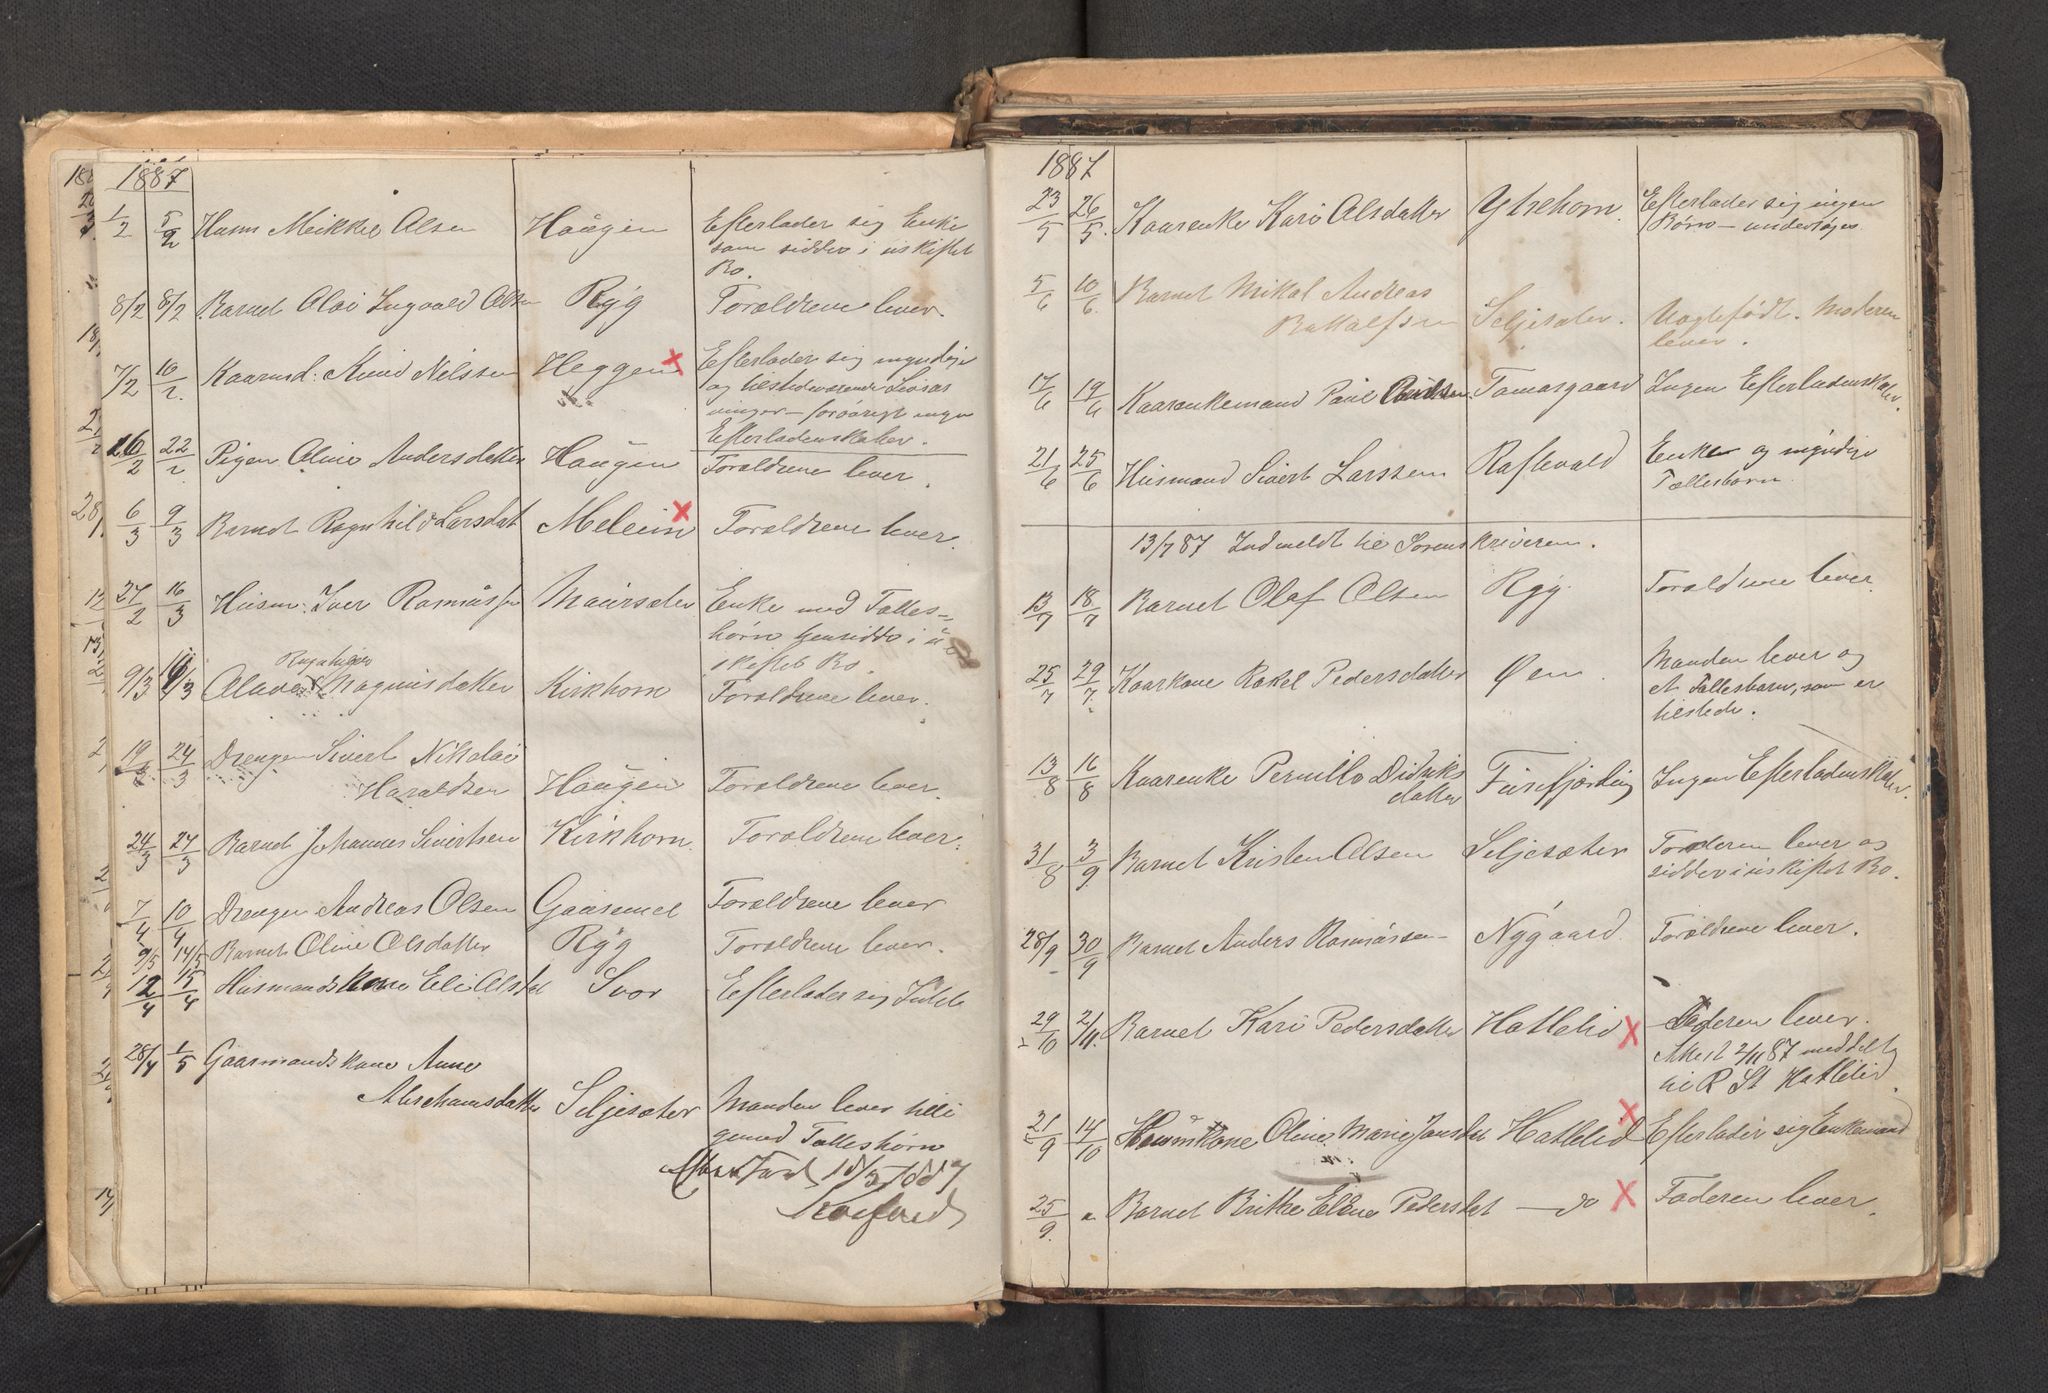 1887
1/2 5/2 Huusm Mikkel Olsen Haugen Efterlader sig Enke
som sidder i uskiftet
Bo.
8/2 8/2 Barnet Olai Ingvald Olsen Ryg Forældrene lever.
7/2 10/2 Kaarmd. Knud Nilssen Heggen Efterlader sig myndige
og tilstedeværende
forøvrigt ingen
Efterladenskaber.
22/2 Pigen Oline Andersdatter Haugen Forældrene lever.
6/3 9/3 Barnet Ragnhild Larsdat Meleim Forældrene lever.
27/2 16/3 Husm. Iver Rasmussen Maursæter Enke med Fælles-
børn hensidder i u-
skiftet Bo.
9/3 16/3 Olave Magnusdatter Kirkhorn Forældrene lever.
19/3 24/3 Drengen Sivert Nikolai
Haraldsen Haugen Forældrene lever.
24/3 27/3 Barnet Johannes Sivertsen Kirkhorn Forældrene lever.
7/4 10/4 Drengen Andreas Olsen Gaasemel Forældrene lever
9/5 14/5 Barnet Oline Olsdatter Ryg Forældrene lever.
12/4 15/4 Husmandskone Eli Olsdat Svor Efterlader sig
28/4 1/5 Gaarmandskone Anne
Abrahamsdatter Seljesæter Manden lever tilli
gemed Fællesbørn
18/5 1887
Koefoed
1887
23/5 26/5 Kaarenke Kari Olsdatter Ytrehorn. Efterlader sig ingen
Børn - undersøges
5/6 10/6 Barnet Mikal Andreas
Seljesæter. Uægtefødt. Moderen
lever.
17/6 19/6 Kaarenkemand Paul Tomasgaard Ingen Efterladenskaber.
21/6 25/6 Husmand Sivert Larssen Raftevold Enke og myndige
Fællesbørn.
13/7 87 Indmeldt til Sorenskriveren.
13/7 18/7 Barnet Olaf Olsen Ryg. Forældrene lever.
25/7 29/7 Kaarkone Rakel Pedersdatter Øen Manden lever og
et Fællesbarn, som er
tilstede.
13/8 16/8 Kaarenke Pernille Didriks
datter Fursfjærding Ingen Efterladenskaber.
31/8 3/9 Barnet Kristen Olsen Seljesæter Faderen lever og
sidder i uskiftet Bo.
28/9 30/9 Barnet Anders Rasmussen Nygaard Forældrene lever.
29/10 2/11. Barnet Kari Pedersdatter Hatlelid Faderen lever.
2/11 87 meddelt
til R St Hatlelid
21/9 14/10 Huusmkone Oline Marie Jansdat Hatlelid Efterlader sig Enkemand
25/9 " Barnet Brithe Eline Pedersdat — do Faderen lever.